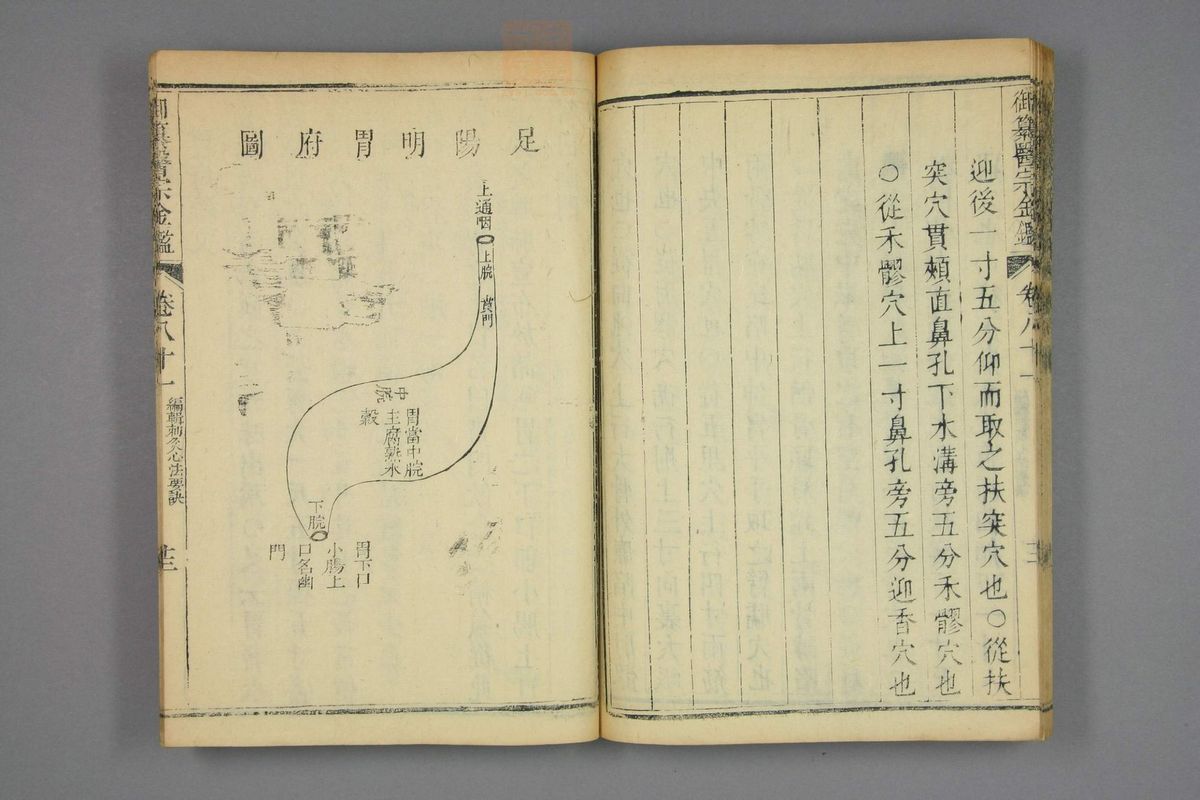 御纂醫宗金鑑
卷八十一
迎後一寸五分仰而取之扶突穴也〇從扶
突穴貫頰直鼻孔下水溝旁五分禾髎穴也
〇從禾髎穴上一寸鼻孔旁五分迎香穴也
足陽明胃府圖
上通咽
上脘
賁門
中脘
胃當中脘
主腐熟水
穀
下脘
胃下口
小腸上
口名幽
門
御纂醫宗金鑑
卷八十一
編輯刺灸心法要訣